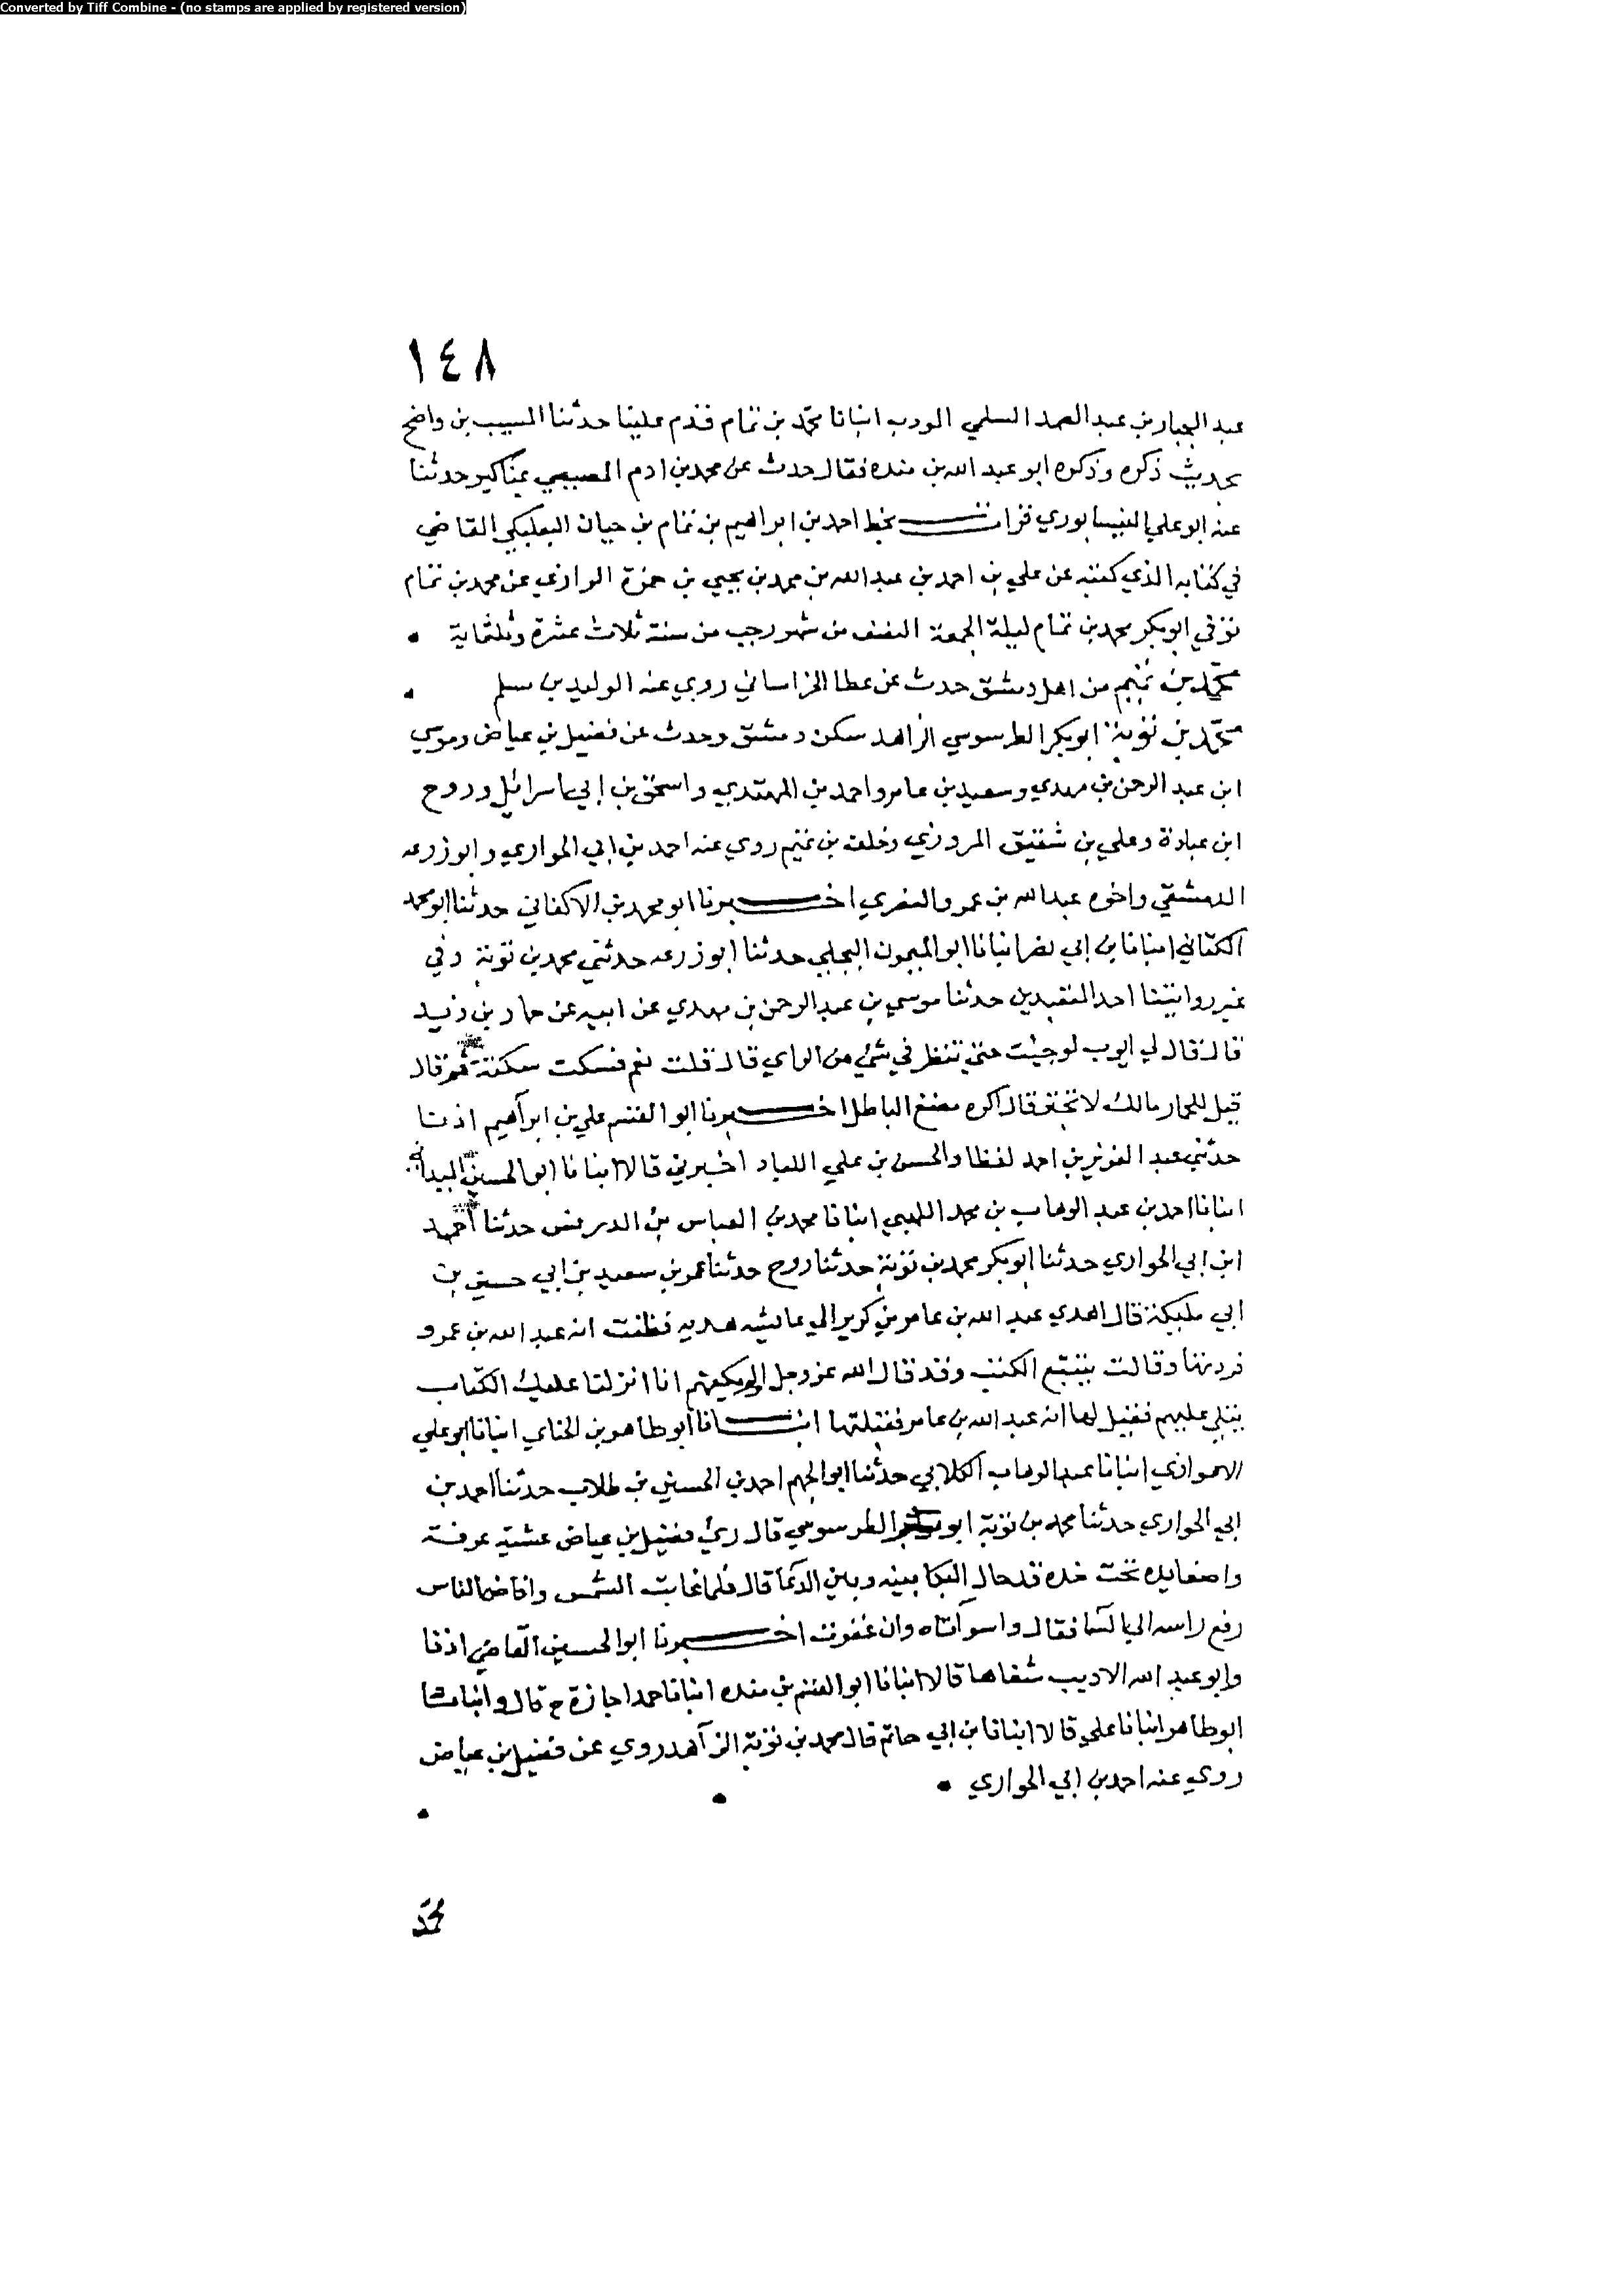 Converted by Tiff Combine - (no stamps are applied by registered version)
١٤٨
عبد الجبار بن عبد الصمد السلمي المودب انبانا محمد بن تمام قدم علينا حدثنا المسيب بن واضح
بحديث ذكره وذكره ابو عبد الله بن منده فقال حدث عن محمد بن ادم المصيصي بمناكير حدثنا
عنه ابو علي النيسابوري قرات بخط احمد بن ابراهيم بن تمام بن حيان البعلبكي القاضي
في كتابه الذي كتبه عن علي بن احمد بن عبد الله بن محمد بن يحيي بن حمزة الوازني عن محمد بن تمام
توفي ابو بكر محمد بن تمام ليلة الجمعة النصف من شهر رجب من سنة ثلاث عشرة وثلثماية
محمد بن تميم من اهل دمشق حدث عن عطا الخراساني روي عنه الوليد بن مسلم
محمد بن توبة ابو بكر الطرسوسي الزاهد سكن دمشق وحدث عن فضيل بن عياض وموسي
ابن عبد الرحمن بن مهدي وسعيد بن عامر واحمد بن المهتدي واسحق بن ابي اسرائيل وروح
ابن عبادة وعلي بن شقيق المروزي وخلف بن تميم روي عنه احمد بن ابي الحواري وابو زرعه
الدمشقي واخوه عبد الله بن عمرو النصري اخبرنا ابو محمد بن الاكفاني حدثنا ابو محمد
الكتاني انبانا بن ابي نصر انبانا ابو الميمون البجلي حدثنا ابو زرعه حدثني محمد بن توبة وفي
غير روايتنا احد المتعبدين حدثنا موسي بن عبد الرحمن بن مهدي عن ابيه عن حماد بن زيد
قال قال لي ايوب لو جيت حتي تنظر في شي من الراي قال قلت نعم فسكت سكتة ثم قال
قيل للحمار مالك لا تجتر قال اكره مضغ الباطل اخبرنا ابو القسم علي بن ابراهيم اذنا
حدثني عبد العزيز بن احمد لفظا والحسن بن علي اللباد اخبرني قالا انبانا ابو الحسين الميداني
انبانا احمد بن عبد الوهاب بن محمد اللهبي انبانا محمد بن العباس بن الدرفس حدثنا احمد
ابن ابي الحواري حدثنا ابو بكر محمد بن توبة حدثنا روح حدثنا عمر بن سعيد بن ابي حسين بن
ابي مليكة قال اهدي عبد الله بن عامر بن كريز الي عائشه هديه فظنت انه عبد الله بن عمرو
فردتها وقالت يتتبع الكتب وقد قال الله عز وجل اولم يكفهم انا انزلنا عليك الكتاب
يتلي عليهم فقيل لها انه عبد الله بن عامر فقبلتها انبانا ابو طاهر بن الحناي انبانا ابو علي
الاهوازي انبانا عبد الوهاب الكلابي حدثنا ابو الجهم احمد بن الحسين بن طلاب حدثنا احمد بن
ابي الحواري حدثنا محمد بن توبة ابو بكر الطرسوسي قال رئي فضيل بن عياض عشية عرفة
واضعا يده تحت خده قد حال البكا بينه وبين الدعا قال فلما غابت الشمس وافاض الناس
رفع راسه الي السما فقال واسواتاه وان عفوت اخبرنا ابو الحسين القاضي اذنا
وابو عبد الله الاديب شفاها قالا انبانا ابو القسم بن منده انبانا حمد اجازة ح قال وانبانا
ابو طاهر انبانا علي قالا انبانا بن ابي حاتم قال محمد بن توبة الزاهد روي عن فضيل بن عياض
روي عنه احمد بن ابي الحواري
محمد